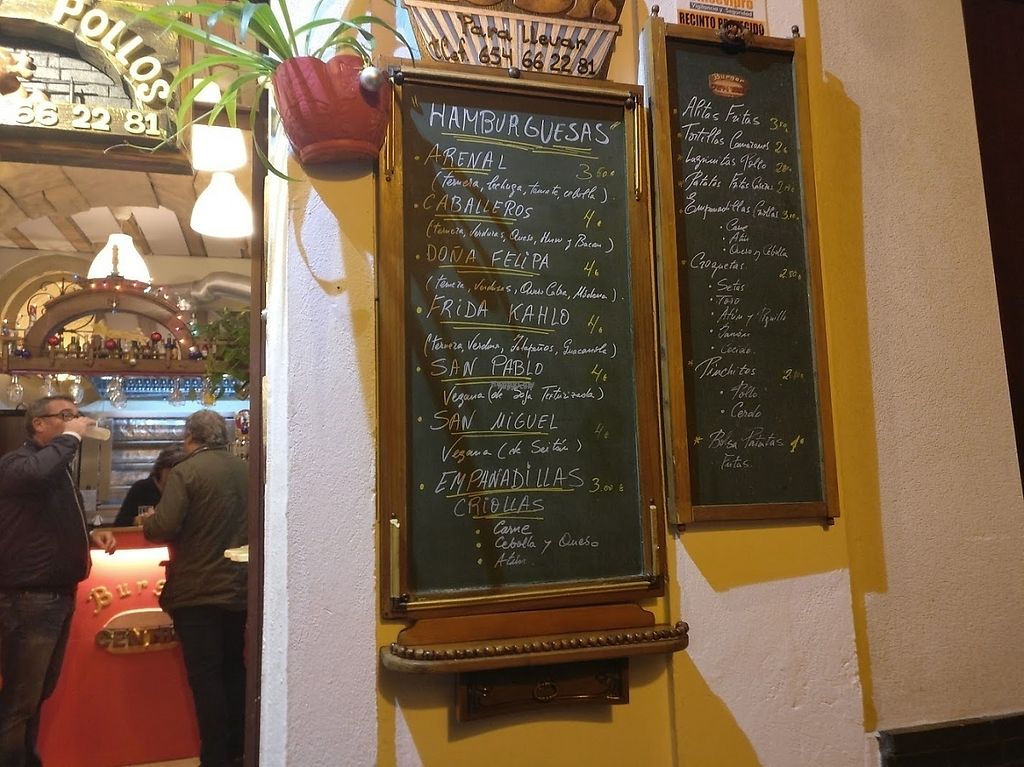 POLLOS
66 22 81
Para llevar
Tlef. 654 66 22 81
Vigilancia y Seguridad
RECINTO PROTEGIDO
HAMBURGUESAS
• ARENAL 3.50€
(ternera, lechuga, tomate, cebolla)
• CABALLEROS 4€
(ternera, verduras, Queso, Huevo y Bacon)
• DOÑA FELIPA 4€
(ternera, verduras, Queso Cabra,
• FRIDA KAHLO 4€
(Ternera, Verdura, Jalapeños, Guacamole)
• SAN PABLO 4€
Vegana (de Soja Texturizada)
• SAN MIGUEL 4€
Vegana (de Seitán)
• EMPANADILLAS 3.00€
CRIOLLAS
• Carne
• Cebolla y Queso
• Atún
Burger
Alitas Fritas
• Tortillas Camarones 2€
• Lagrimitas Pollo
• Patatas Fritas
• Empanadillas Criollas
• Carne
• Atún
• Queso y Cebolla
• Croquetas 2.50€
• Setas
• Toro
• Atún y Piquillo
• Jamón
• Cocido
* Pinchitos
• Pollo
• Cerdo
* Bolsa Patatas 1€
Fritas
Burg
CENT